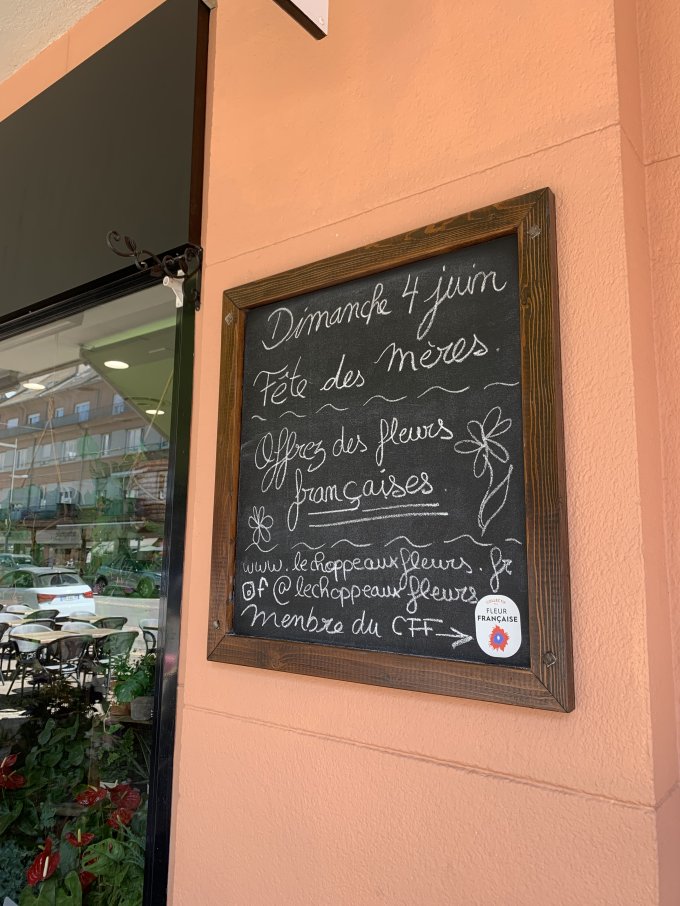 Dimanche 4 juin
Fête des mères.
Offrez des fleurs
françaises.
www.lechoppeauxfleurs.fr
@lechoppeauxfleurs
Menbre du CFF →
COLLECTIF
FLEUR
FRANÇAISE